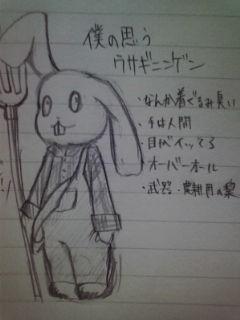 僕の思う
ウサギニンゲン
・なんか着ぐるみ臭い
・手は人間
・目がイッてる
・オーバーオール
・武器・農耕用の